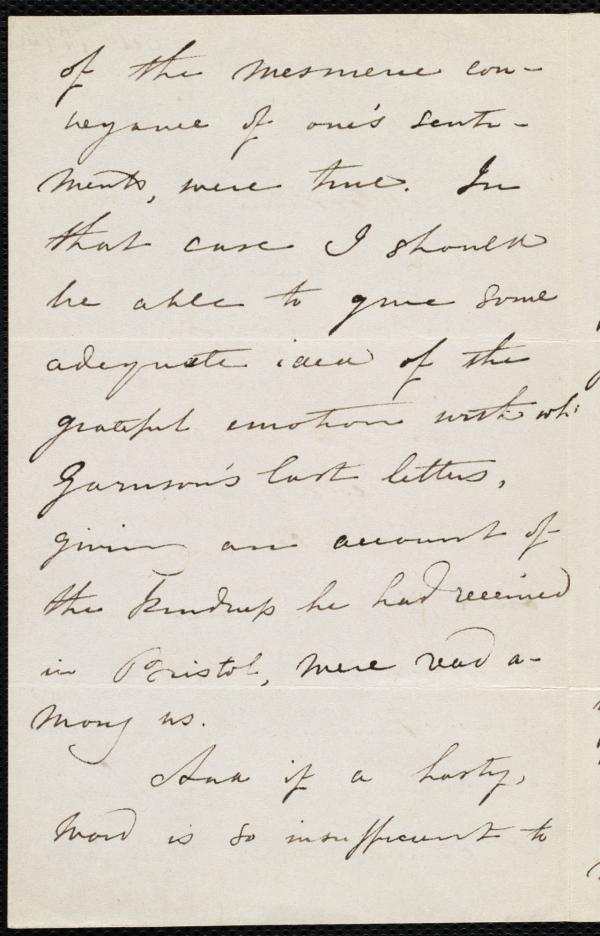 of the mesmeric con-
veyance of one's senti-
ments, were true. In
that case I should
be able to give some
adequate idea of the
grateful emotion with wh:
Garrison's last letters,
giving an account of
the kindness he had received
in Bristol, were read a-
mong us.
And if a hasty,
word is so insufficient to